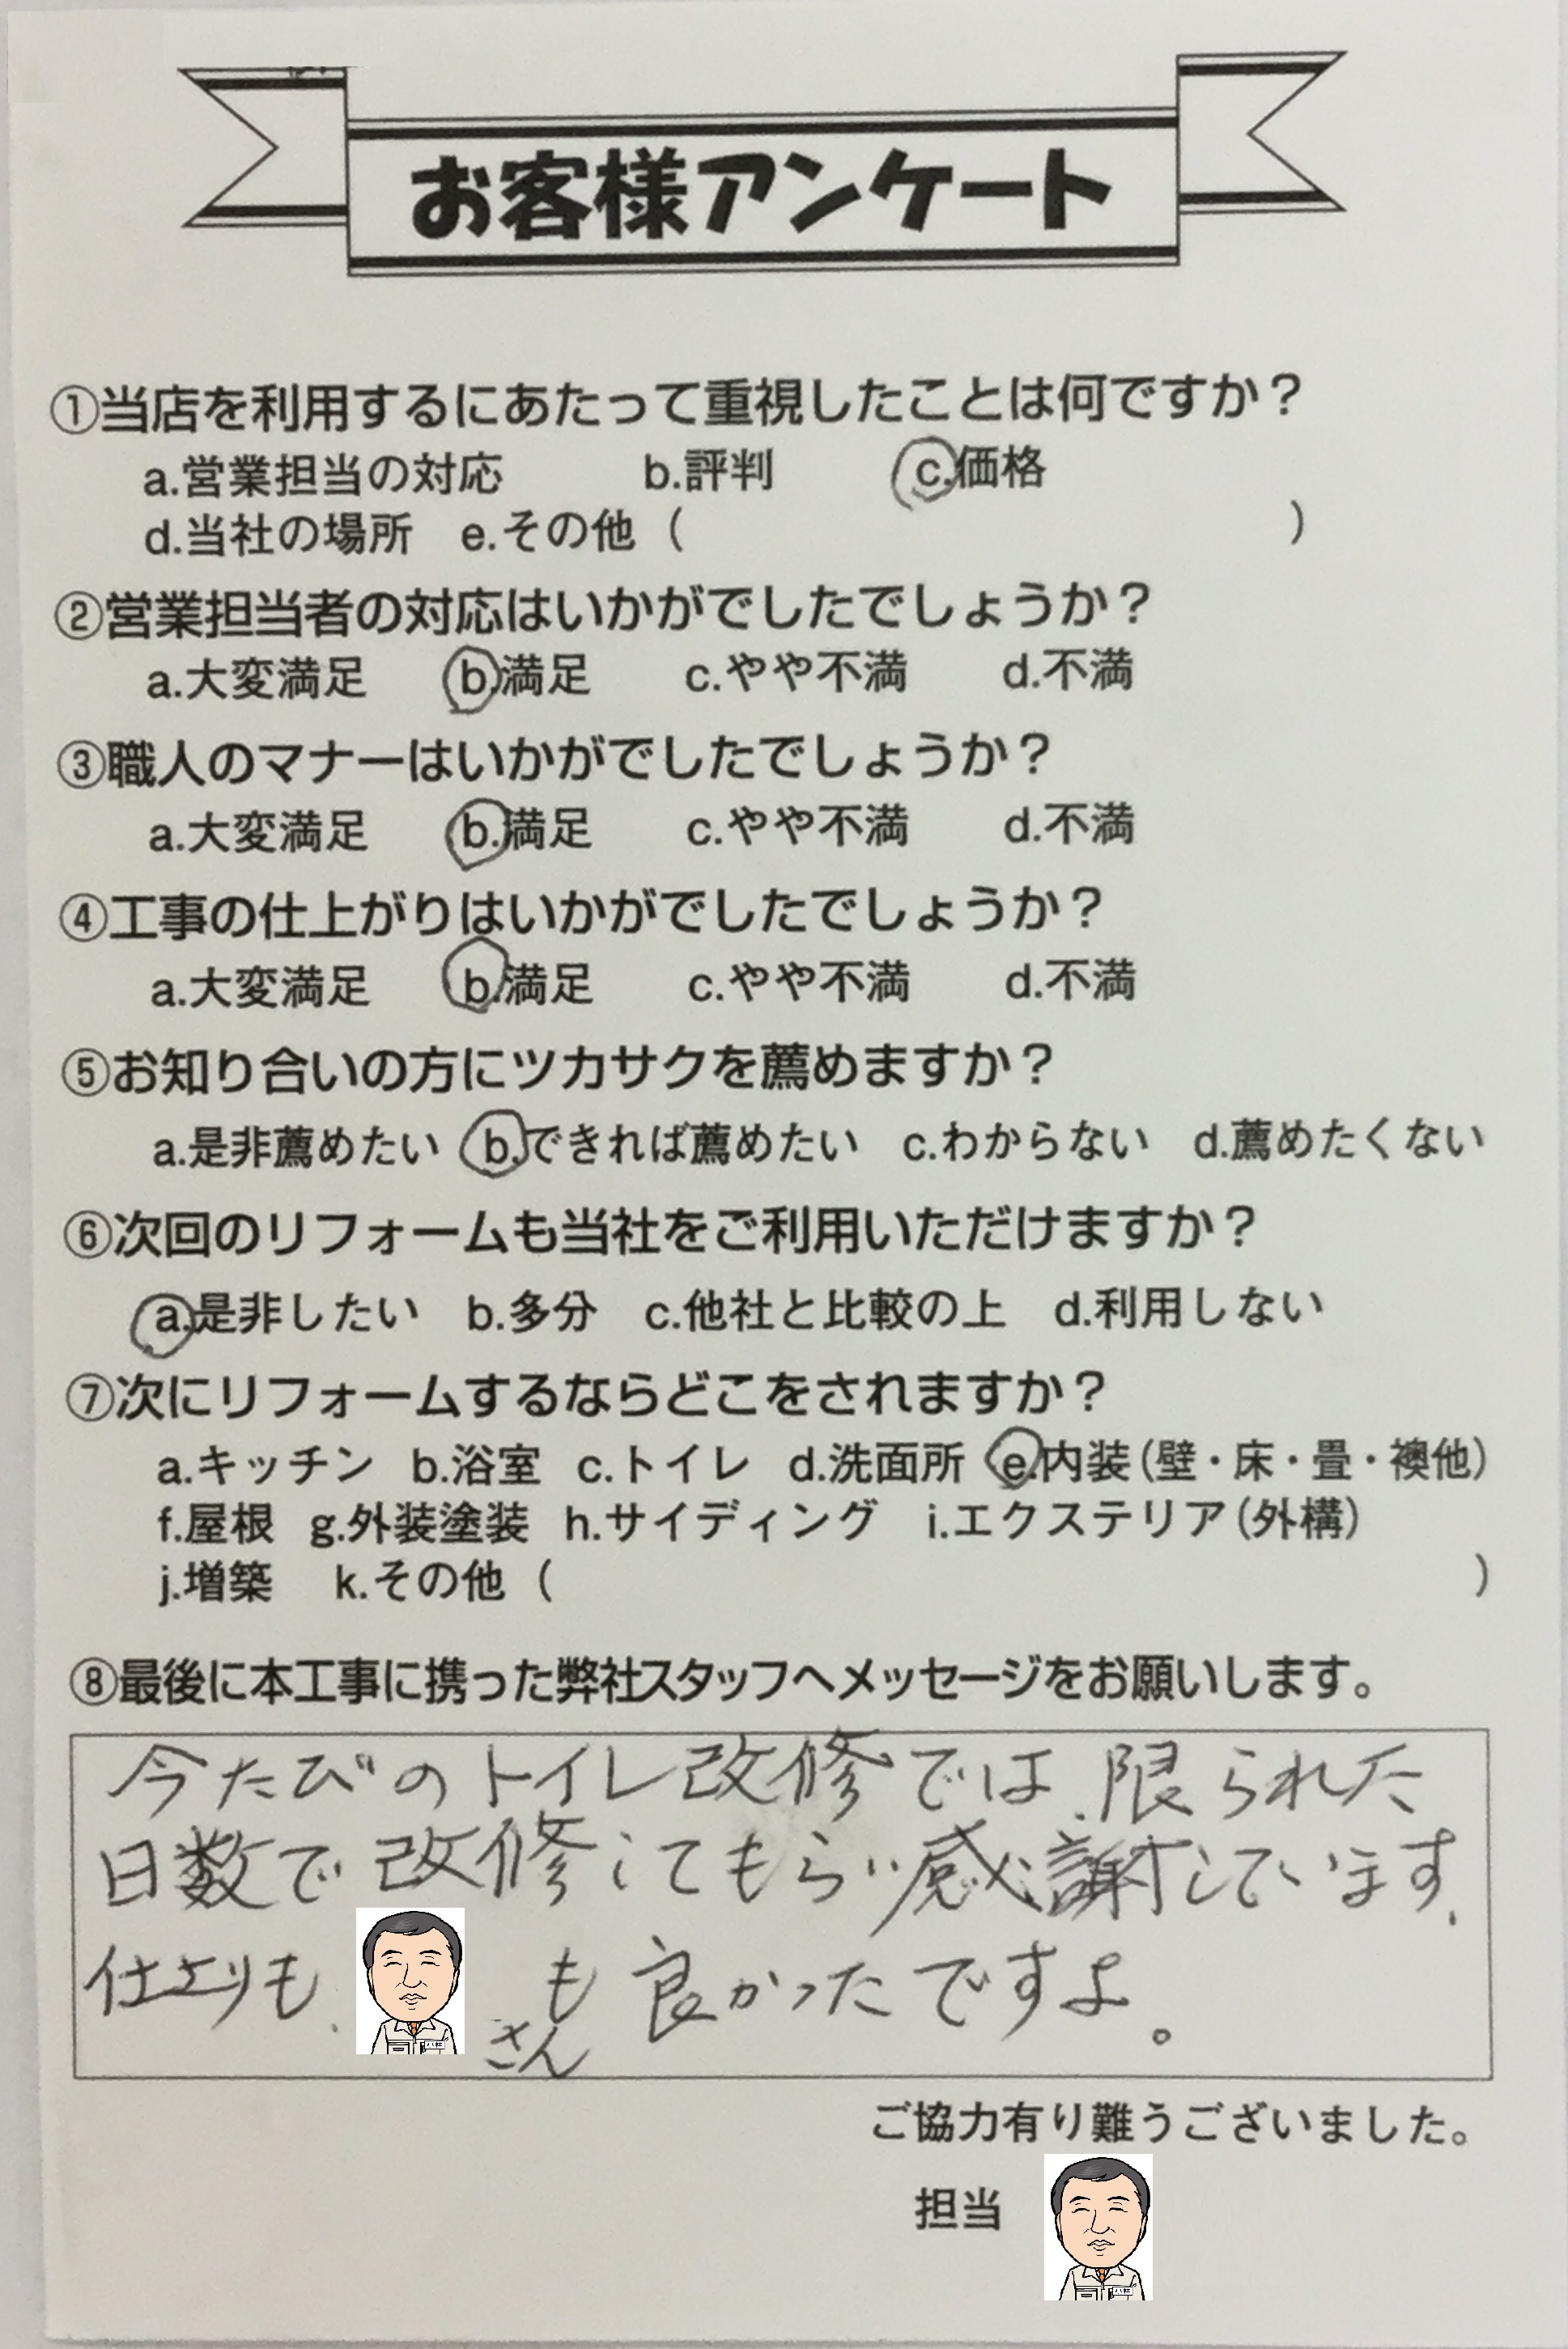 お客様アンケート
①当店を利用するにあたって重視したことは何ですか？
a.営業担当の対応 b.評判 c.価格
d.当社の場所 e.その他（ ）
②営業担当者の対応はいかがでしたでしょうか？
a.大変満足 b.満足 c.やや不満 d.不満
③職人のマナーはいかがでしたでしょうか？
a.大変満足 b.満足 c.やや不満 d.不満
④工事の仕上がりはいかがでしたでしょうか？
a.大変満足 b.満足 c.やや不満 d.不満
⑤お知り合いの方にツカサクを薦めますか？
a.是非薦めたい b.できれば薦めたい c.わからない d.薦めたくない
⑥次回のリフォームも当社をご利用いただけますか？
a.是非したい b.多分 c.他社と比較の上 d.利用しない
⑦次にリフォームするならどこをされますか？
a.キッチン b.浴室 c.トイレ d.洗面所 e.内装（壁・床・畳・襖他）
f.屋根 g.外装塗装 h.サイディング i.エクステリア（外構）
j.増築 k.その他（ ）
⑧最後に本工事に携った弊社スタッフへメッセージをお願いします。
今たびのトイレ改修では、限られた
日数で改修してもらい感謝しています、
仕上りも、 さんも良かったですよ。
ご協力有り難うございました。
担当